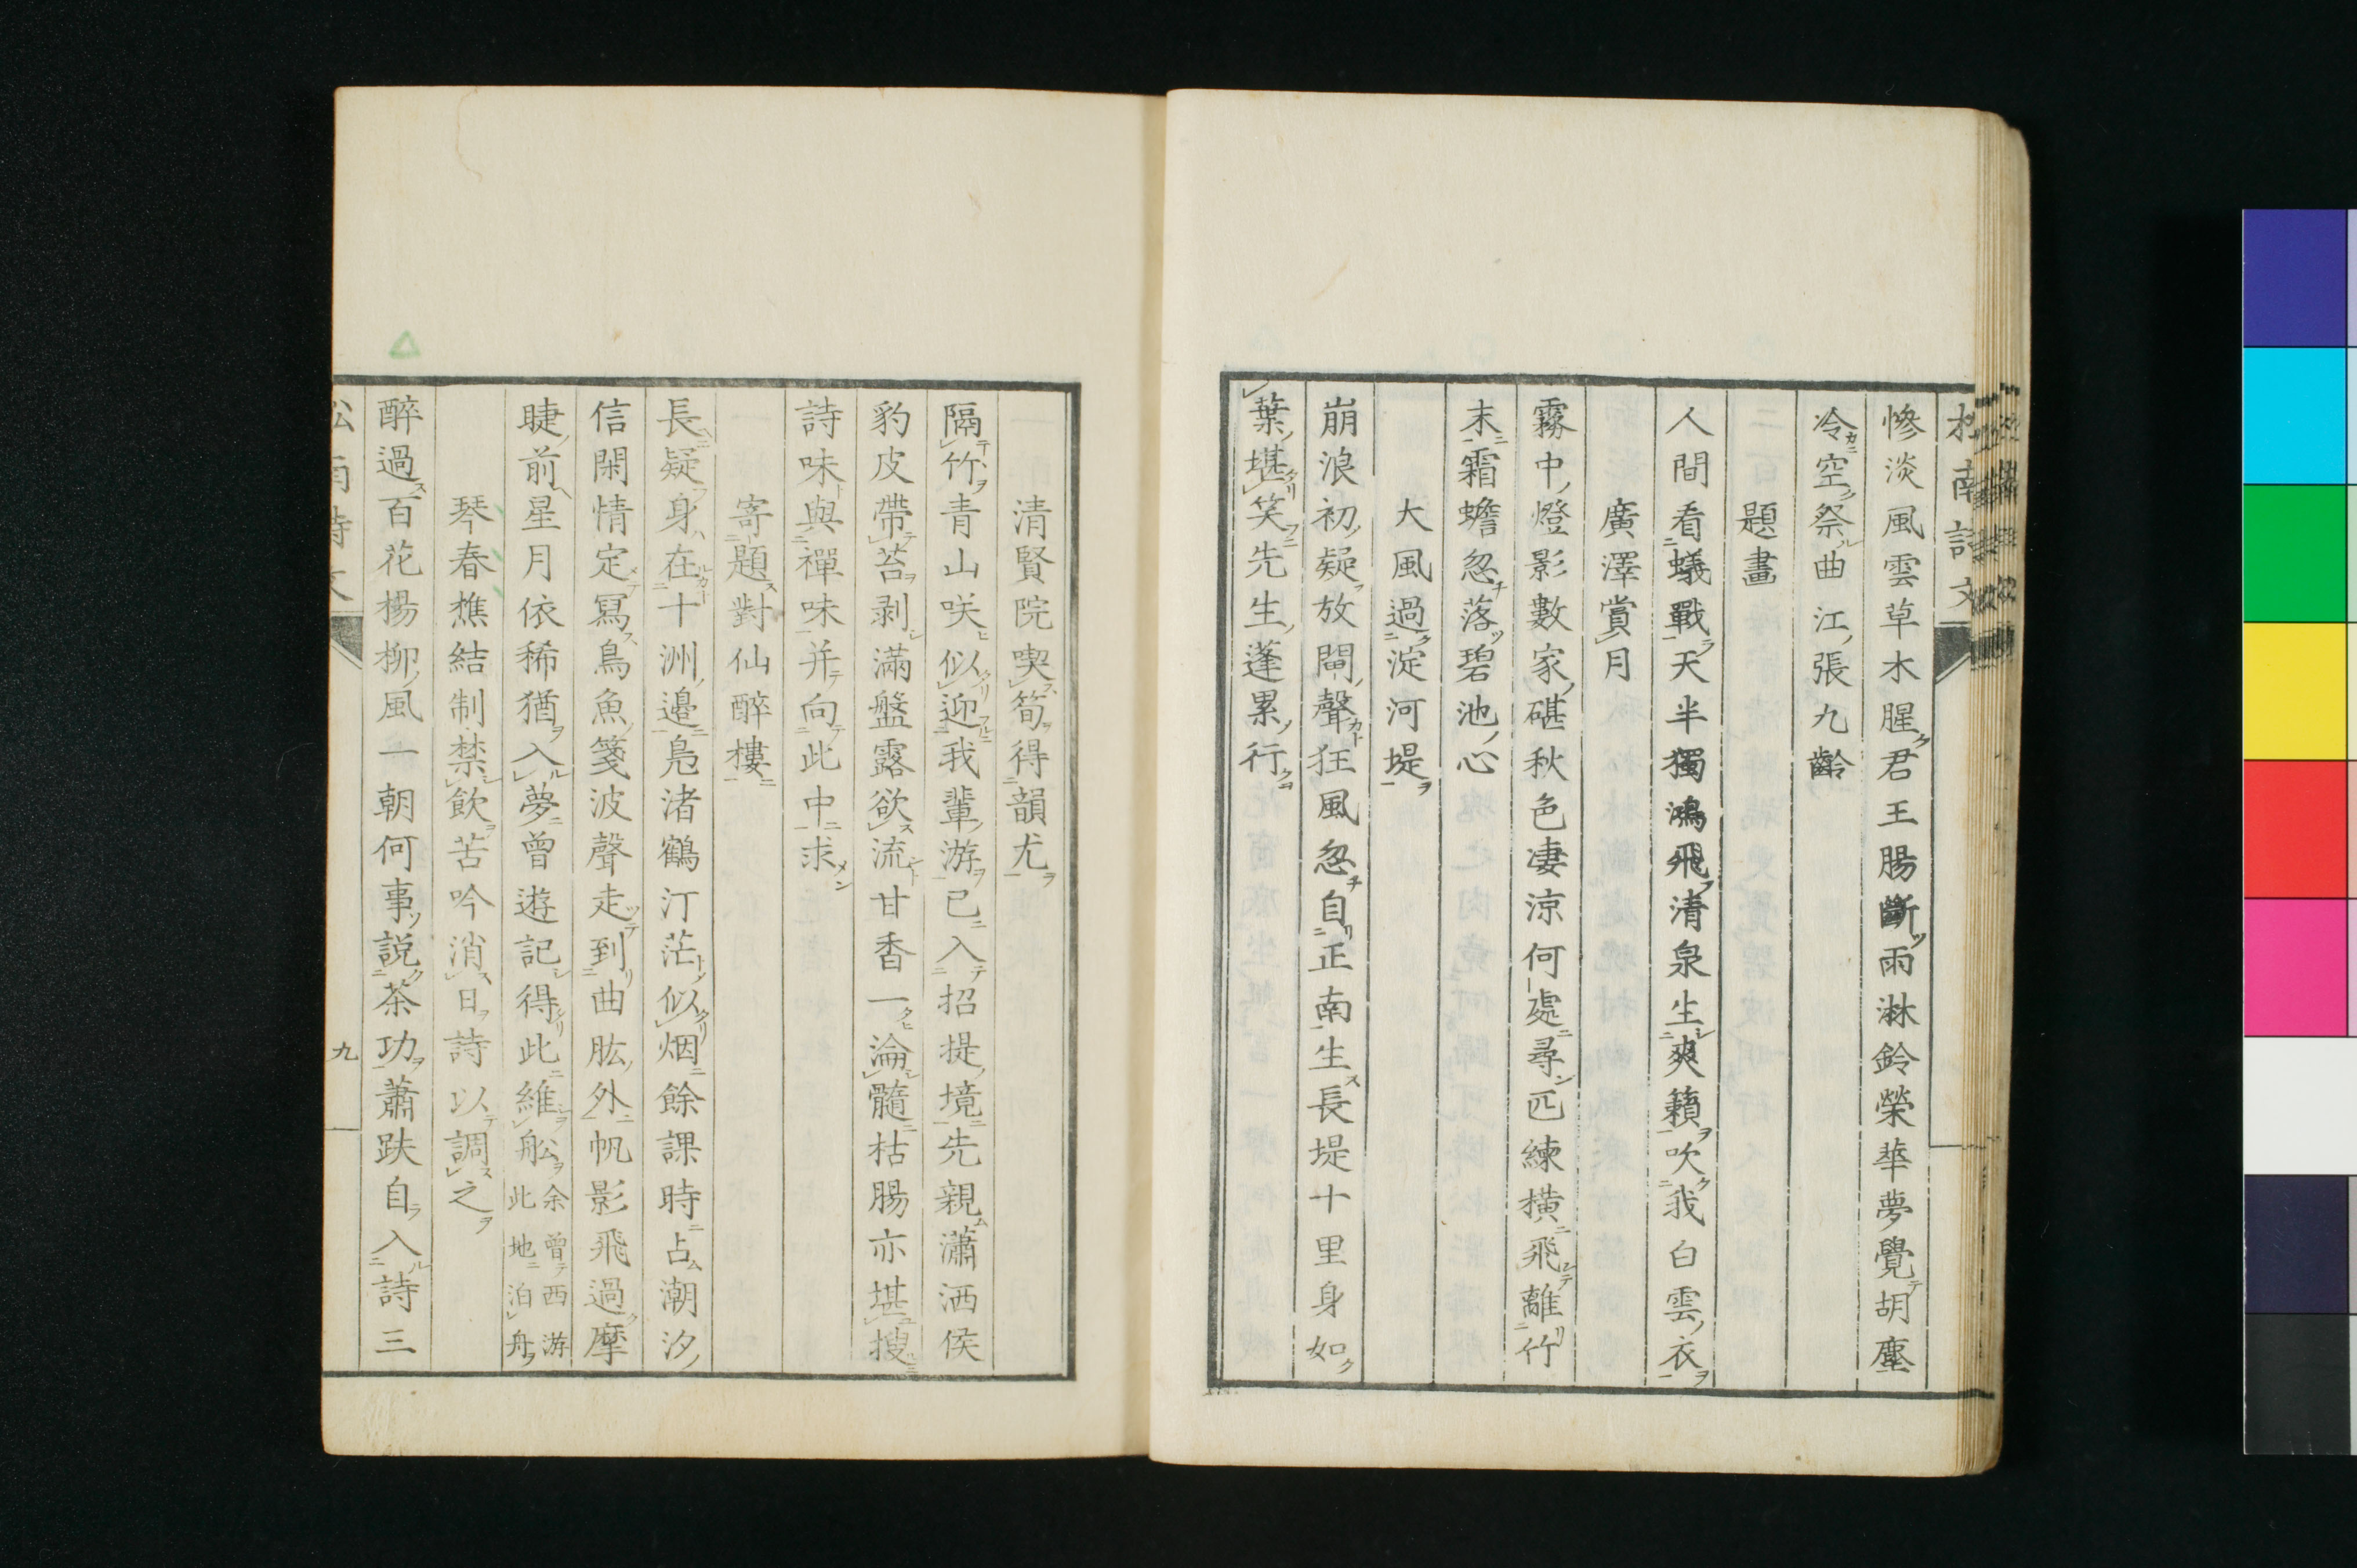 慘淡風雲草木腥君王腸斷雨淋鈴榮華夢覺胡塵
冷空祭曲江張九齡
題畫
人間看蟻戰天半獨鴻飛清泉生爽籟吹我白雲衣
廣澤賞月
霧中燈影數家碪秋色凄涼何處尋匹練橫飛離竹
末霜蟾忽落碧池心
大風過淀河堤
崩浪初疑放閘聲狂風忽自正南生長堤十里身如
葉堪笑先生蓬累行
清賢院喫筍得韻尤
隔竹青山咲似迎我輩游已入招提境先親瀟洒侯
豹皮帶苔剥滿盤露欲流甘香一淪髓枯腸亦堪搜
詩味與禪味并向此中求
寄題對仙醉樓
長疑身在十洲邉鳬渚鶴汀茫似烟餘課時占潮汐
信閑情定寫鳥魚箋波聲走到曲肱外帆影飛過摩
睫前星月依稀猶入夢曾遊記得此維舩余曾西游此地泊舟
琴春樵結制禁飲苦吟消日詩以調之
醉過百花楊柳風一朝何事説茶功蕭趺自入詩三
九